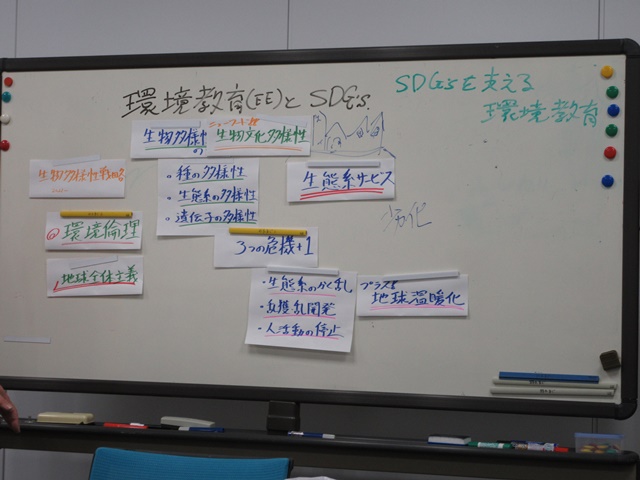 環境教育(EE)と SDG's.
SDG'sを支える
環境教育
生物多様性
の
生物文化多様性
・種の多様性
・生態系の多様性
・遺伝子の多様性
生態系サービス
劣化
環境倫理
地球全体主義
3つの危機+1
・生態系のかく乱
・乱獲乱開発
・人活動の停止
プラス1
地球温暖化